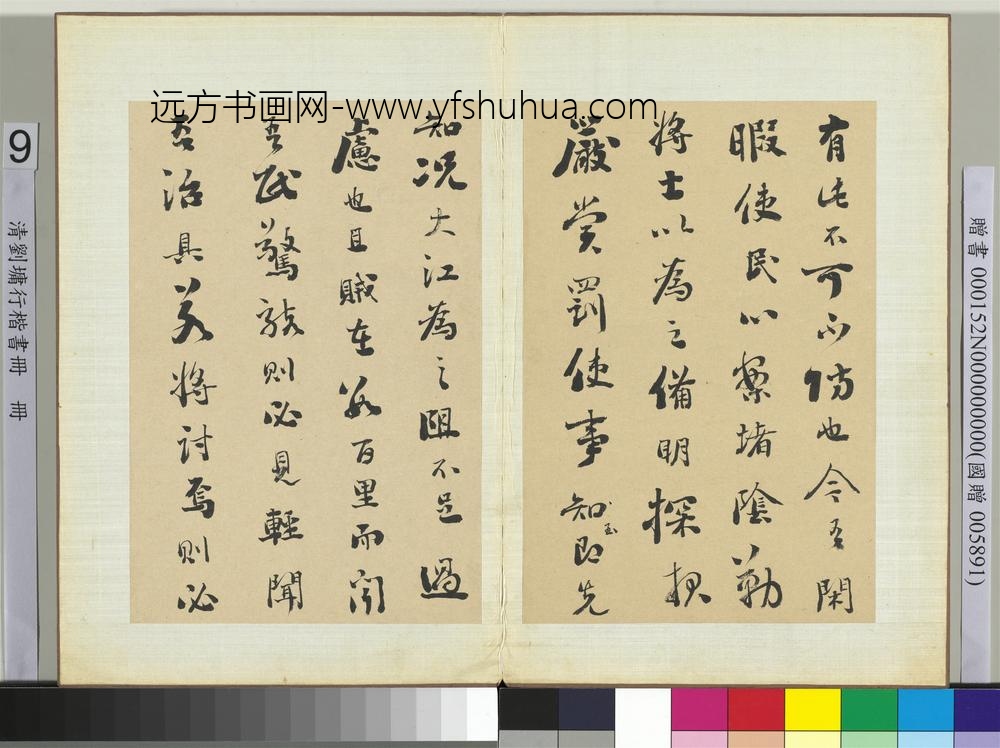 远方书画网-www.yfshuhua.com
有此不可不防也今吾閑
暇使民以案堵陰勒
將士以為之備明探报
嚴賞罰使事知至即先
知况大江為之阻不足過
慮也且賊在數百里而聞
吾民驚駭則必見輕聞
吾治具若將討焉則必
9
清劉墉行楷書冊 冊
贈書 000152N000000000(國贈 005891)